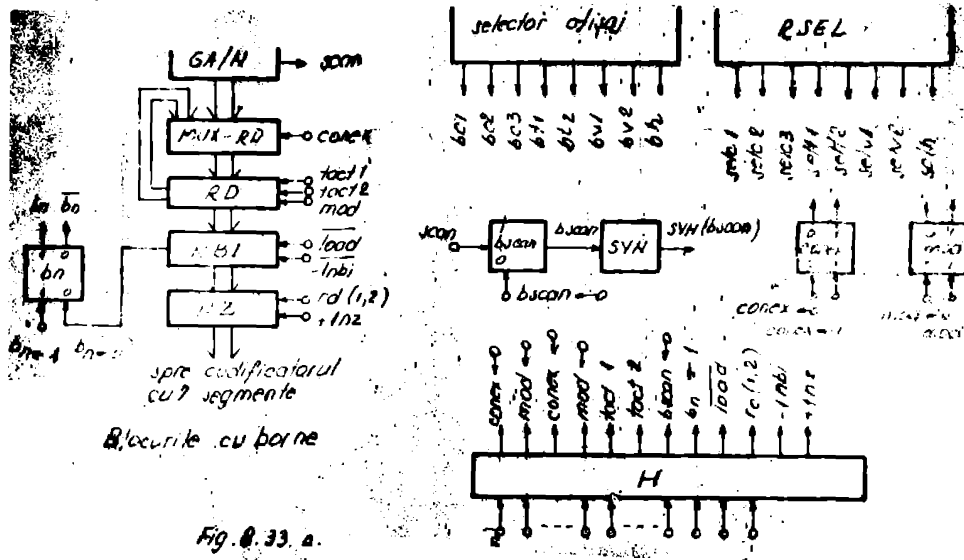 GA/N
scan
MUX-RD
conex
RD
tact 1
tact 2
mod
bn
bn
bn
load
-1nbi
rd (1,2)
+1nz
spre codificatorul
cu 7 segmente
Blocurile cu borne
Fig. 8.33. a.
selector afișaj
bc1
bc2
bc3
bt1
bt2
bv1
bv2
bh
RSEL
selc 1
selc 2
selc3
selt1
selt2
selv1
selv2
selh
scan
bscan
bscan
SYN
SYN(bscan)
bscan←0
conex←0
conex←0
mod←0
conex←0
mod←0
tact 1
tact 2
bscan←0
bn←1
load
rc(1,2)
-1nbi
+1nz
H